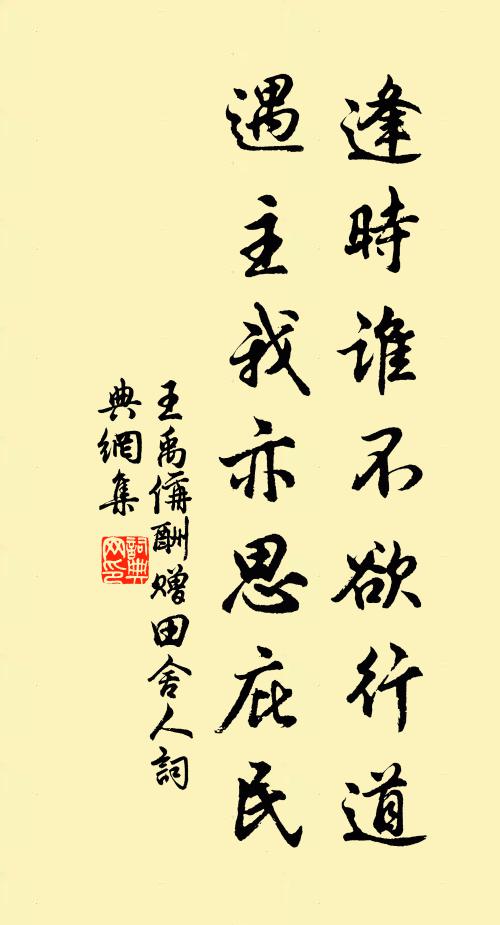 逢時誰不欲行道
遇主我亦思庇民
王禹偁酬赠田舍人詞
典網集
詞典
网印